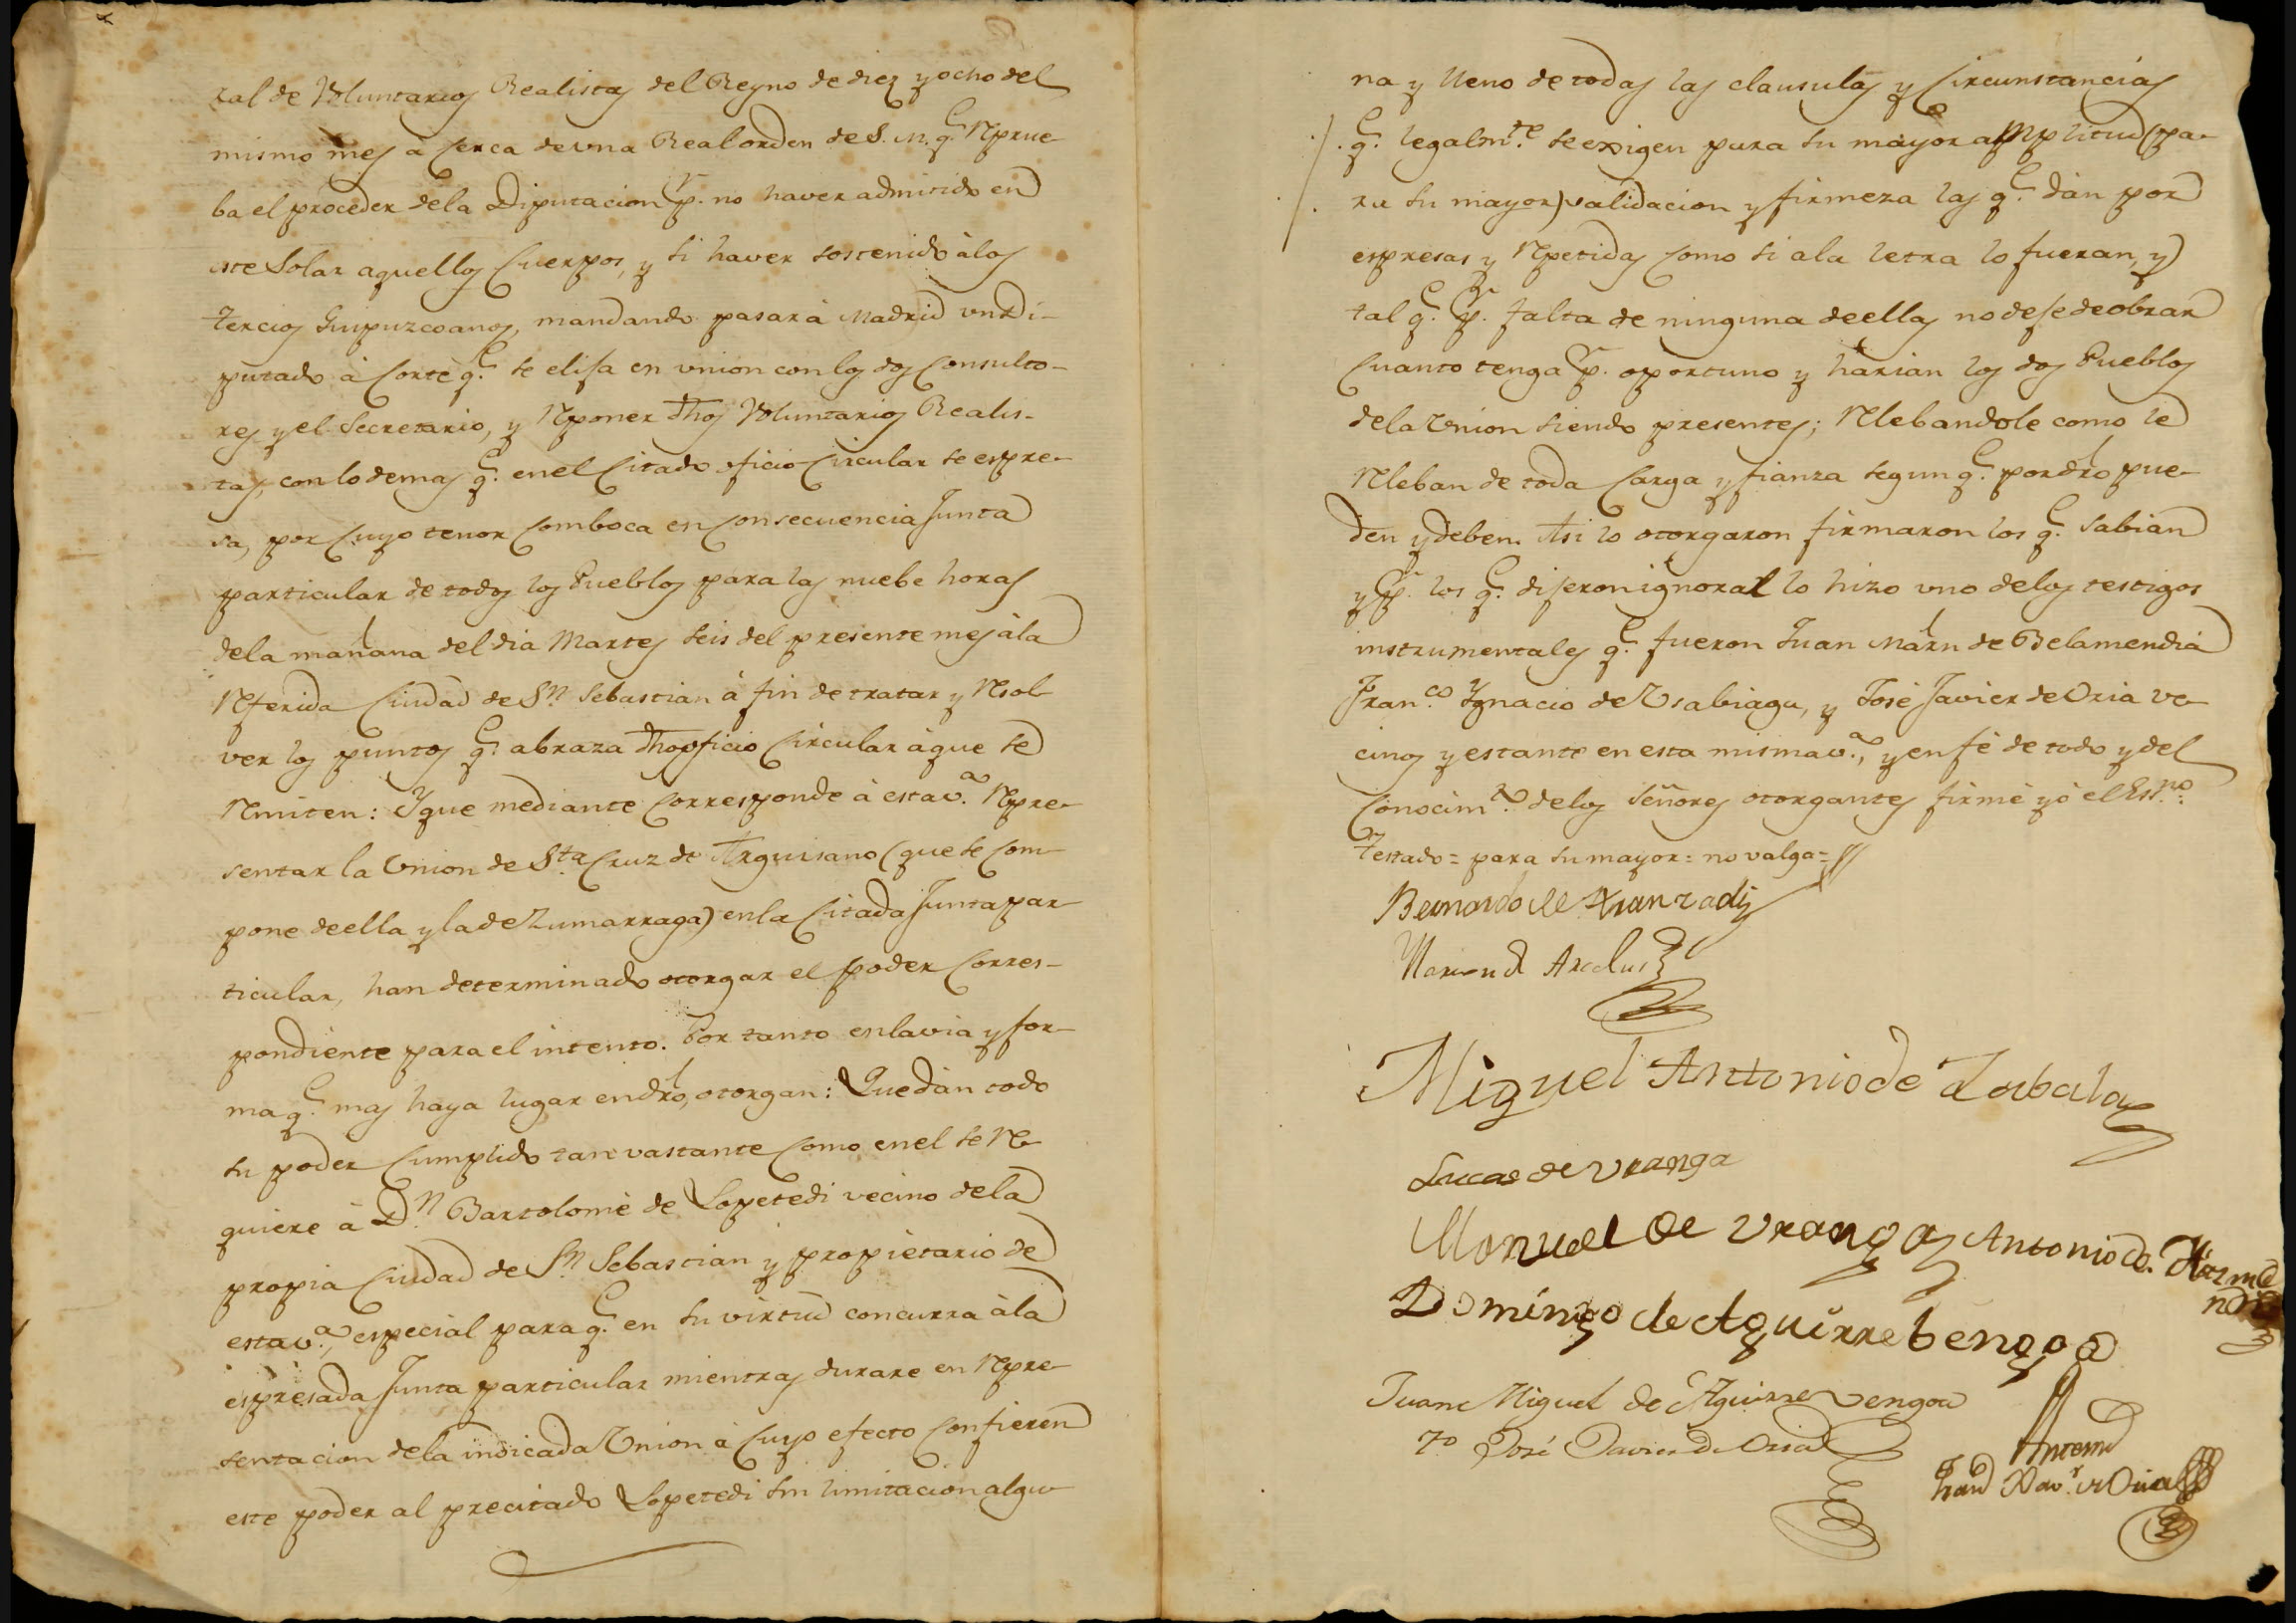 ral de Voluntarios Realistas del Reyno de diez y ocho del
mismo mes á cerca de una Real orden de S. M. q.e reprue-
ba el proceder de la Diputacion p.r no haver admitido en
este Solar aquellos Cuerpos, y si haver sostenido à los
tercios Guipuzcoanos, mandando pasar à Madrid un Di-
putado à Corte q.e se elija en union con los dos Consulto-
res y el Secretario, y reponer dhos Voluntarios Realis-
tas, con lo demas q.e en el Citado oficio Circular se espre-
sa, por cuyo tenor comboca en consecuencia Junta
particular de todos los Pueblos para las nuebe horas
de la mañana del dia Martes seis del presente mes à la
referida Ciudad de S.n Sebastian à fin de tratar y resol-
ver los puntos q.e abraza dho oficio Circular à que se
remiten: Y que mediante corresponde à esta v.a repre-
sentar la Union de S.ta Cruz de Arguisano (que se com-
pone de ella y la de Zumarraga) en la Citada Junta par-
ticular, han determinado otorgar el poder corres-
pondiente para el intento. Por tanto en la via y for-
ma q.e mas haya lugar en dro, otorgan: Que dàn todo
su poder Cumplido tan vastante como en el se re-
quiere à D.n Bartolomè de Lopetedi vecino de la
propia Ciudad de S.n Sebastian y propietario de
esta v.a, especial para q.e en su virtud concurra à la
espresada Junta particular mientras durare en repre-
sentacion de la indicada Union à cuyo efecto confieren
este poder al precitado Lopetedi sin limitacion algu-
na y lleno de todas las clausulas y circunstancias
q.e legalm.te se exigen para su mayor amplitud (pa-
ra su mayor) validacion y firmeza las q.e dàn por
espresas y repetidas como si a la letra lo fueran, y
tal q.e p.r falta de ninguna de ellas no deje de obrar
cuanto tenga p.r oportuno y harian los dos Pueblos
de la Union siendo presentes; relebandole como le
releban de toda carga y fianza segun q.e por dro pue-
den y deben. Asi lo otorgaron firmaron los q.e sabian
y p.r los q.e dijeron ignorar lo hizo uno de los testigos
instrumentales q.e fueron Juan Martn de Belamendia
Fran.co Ygnacio de Usabiaga, y José Javier de Oria ve-
cinos y estante en esta misma v.a, y en fè de todo y del
conocim.to de los Señores otorgantes firmé yo el Ess.no:
Testado = para su mayor: no valga =
Bernardo de Aranzadi
Mariano de Arcelus
Miguel Antonio de Zabala
Lucas de Uranga
Manuel de Uranga Antonio de
Domingo de Aguirrebengoa
Juan Miguel de Aguirrevengoa
To José Javier de Oria
Antemi
Xav.r de Oria